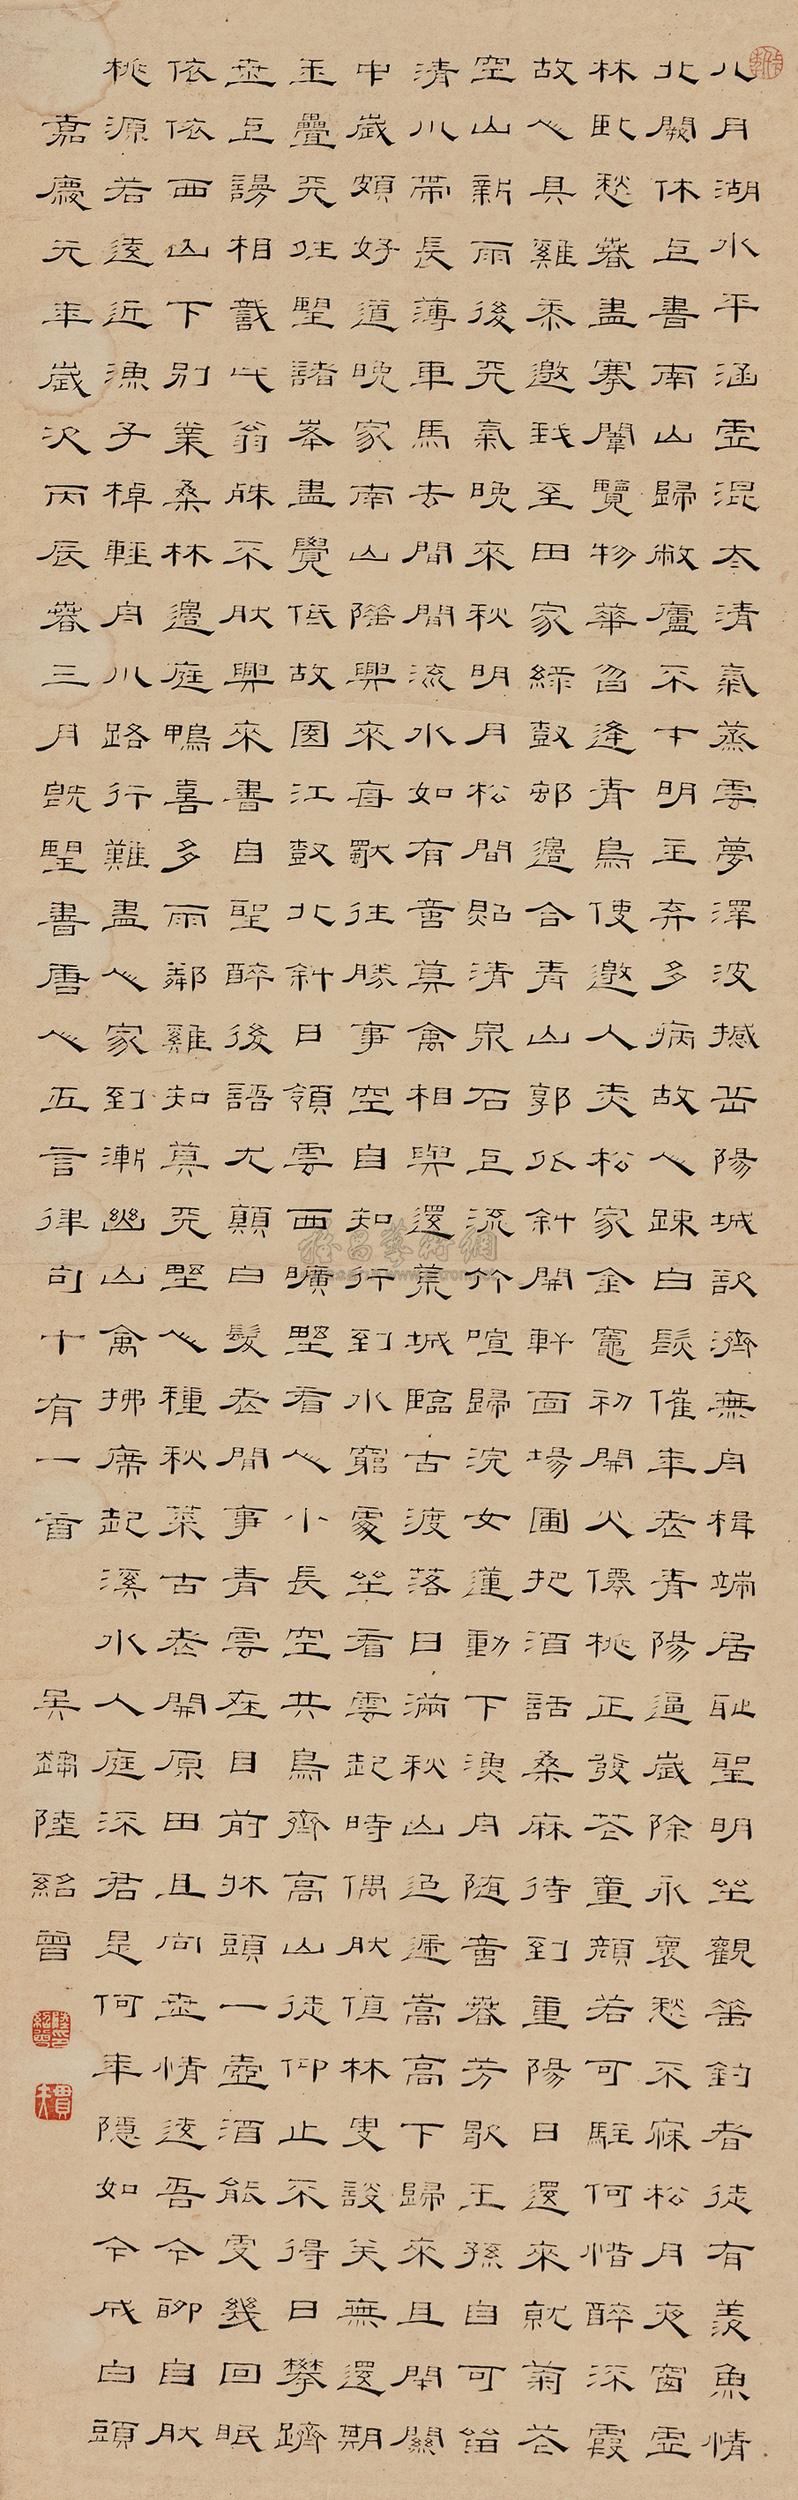 八月湖水平涵虛混太清氣蒸雲夢澤波撼岳陽城欲濟無舟楫端居恥聖明坐觀垂釣者徒有羨魚情
北闕休上書南山歸敝廬不才明主弃多病故人疎白髮催年老青陽逼歲除永褱愁不寐松月夜窗虛
林臥愁春盡搴闈覽物華忽逢青鳥使邀人赤松家金竈初開火僊桃正發花童顏若可駐何惜醉流霞
故人具雞黍邀我至田家綠樹邨邊合青山郭外斜開軒面場圃把酒話桑麻待到重陽日還來就菊花
空山新雨後天氣晚來秋明月松間照清泉石上流竹喧歸浣女蓮動下漁舟隨意春芳歇王孫自可留
清川帶長薄車馬去閒閒流水如有意莫禽相與還荒城臨古渡落日滿秋山迢遞嵩高下歸來且閉關
中歲頗好道晚家南山陲興來每獨往勝事空自知行到水窮處坐看雲起時偶然值林叟談笑無還期
玉疊天晴望諸峯盡覺低故園江樹北斜日嶺雲西曠野看人小長空共鳥齊高山徒仰止不得日攀躋
世上謾相識此翁殊不然興來書自聖醉後語尤顛白髮老閒事青雲在目前牀頭一壺酒能更幾回眠
依依西山下別業桑林邊庭鴨喜多雨鄰雞知莫天野人種秋菜古老開原田且向世情遠吾今聊自然
桃源若遠近漁子棹輕舟川路行難盡人家到漸幽山禽拂席起溪水入庭流君是何年隱如今成白頭
嘉慶元年歲次丙辰春三月既望書唐人五言律句十有一首 吳趨陸紹曾
陸印紹曾
貫夫
雅昌藝術網